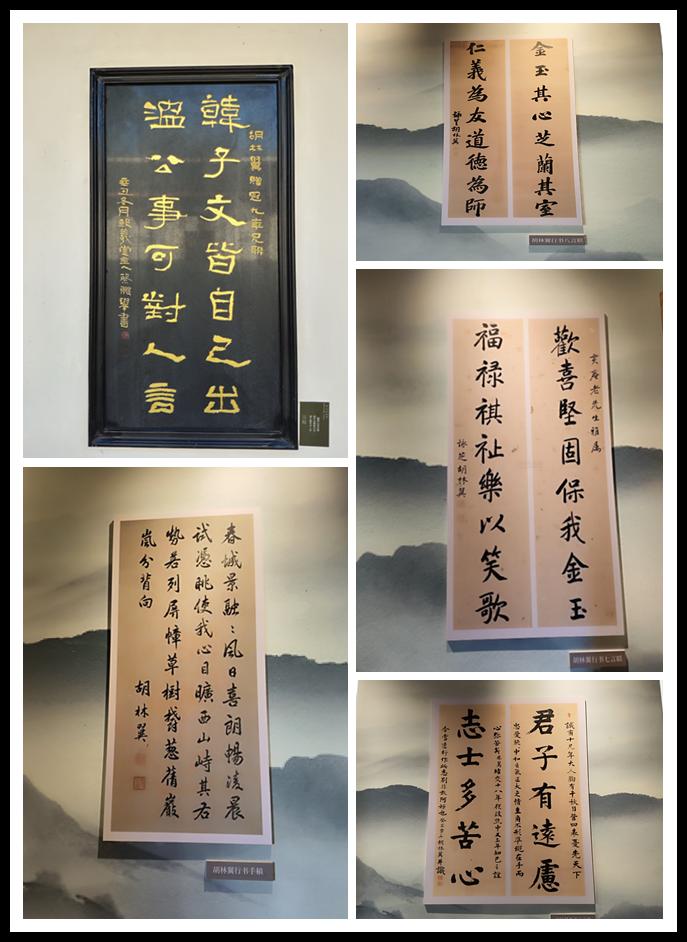 胡林翼贈冠九年兄聯
韓子文皆自己出
溫公事可對人言
金玉其心芝蘭其室
仁義為友道德為師
詠芝胡林翼
胡林翼行书八言联
亥庵老先生雅属
歡喜堅固保我金玉
福禄祺祉樂以笑歌
詠芝胡林翼
春城景融〻風日喜朗暢淩晨
試憑眺使我心目曠西山峙其右
勢若列屏幛草樹鬱葱蒨巖
嵐分背向
胡林翼
胡林翼行书手稿
君子有遠慮
志士多苦心